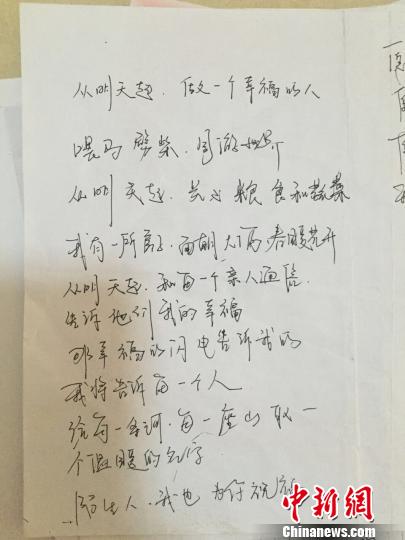 从明天起，做一个幸福的人
喂马 劈柴，周游世界
从明天起，关心粮食和蔬菜
我有一所房子，面朝大海，春暖花开
从明天起，和每一个亲人通信，
告诉他们我的幸福
那幸福的闪电告诉我的
我将告诉每一个人
给每一条河，每一座山取一
个温暖的名字
陌生人，我也为你祝福
中新网
Chinanews.com